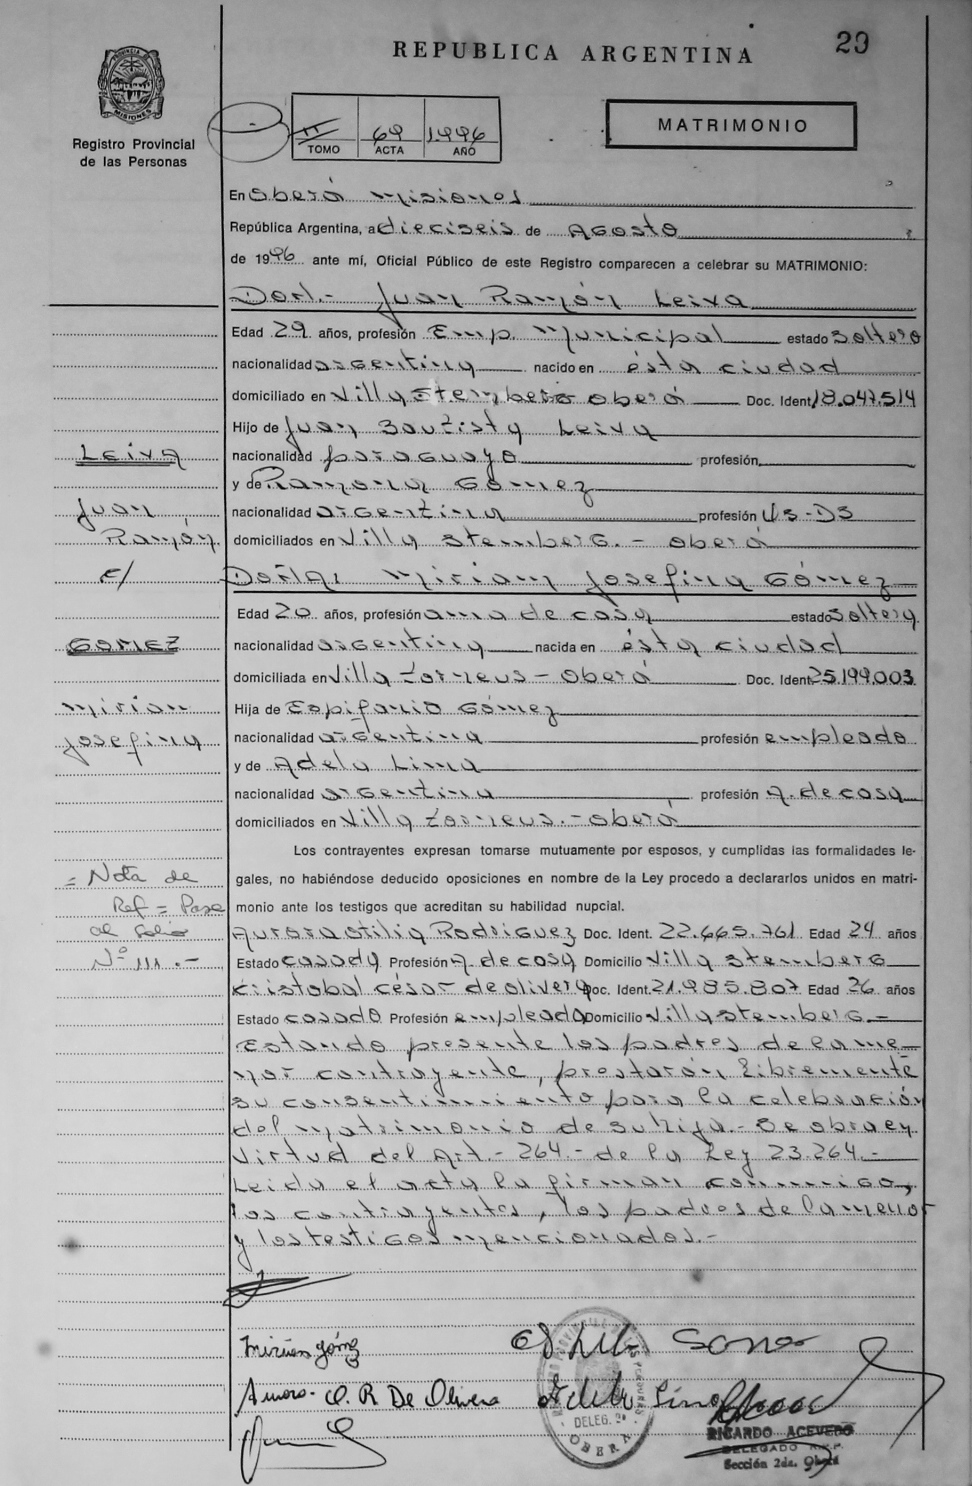 REPUBLICA ARGENTINA
29
PROVINCIA DE
MISIONES
Registro Provincial
de las Personas
II
69
1.996
TOMO
ACTA
AÑO
MATRIMONIO
En Oberá Misiones
República Argentina, a dieciseis de Agosto
de 1996 ante mí, Oficial Público de este Registro comparecen a celebrar su MATRIMONIO:
Don.- Juan Ramón Leiva
Edad 29 años, profesión Emp. Municipal estado soltero
nacionalidad argentina nacido en ésta ciudad
domiciliado en Villa Stemberg Oberá Doc. Ident. 18.047.514
Hijo de Juan Bautista Leiva
nacionalidad paraguaya profesión,
y de Ramona Gómez
nacionalidad argentina profesión Us-Ds
domiciliados en Villa Stemberg.- Oberá
Doña: Miriam Josefina Gómez
Edad 20 años, profesión ama de casa estado soltera
nacionalidad argentina nacida en ésta ciudad
domiciliada en Villa - Oberá Doc. Ident. 25.199.003
Hija de Espifanio Gómez
nacionalidad argentina profesión empleado
y de Adela Lima
nacionalidad argentina profesión A. de casa
domiciliados en Villa .- Oberá
Los contrayentes expresan tomarse mutuamente por esposos, y cumplidas las formalidades le-
gales, no habiéndose deducido oposiciones en nombre de la Ley procedo a declararlos unidos en matri-
monio ante los testigos que acreditan su habilidad nupcial.
Aurora Otilia Rodriguez Doc. Ident. 22.665.761 Edad 24 años
Estado casada Profesión A. de casa Domicilio Villa Stemberg
Cristobal César de olivera Doc. Ident. 21.985.807 Edad 26 años
Estado casado Profesión empleado Domicilio Villa Stemberg.-
Estando presente los padres de la me-
nor contrayente, prestarón libremente
su consentimiento para la celebración
del matrimonio de su hija.- Se obra en
virtud del Art.- 264.- de la Ley 23.264.-
Leida el acta la firman conmigo,
los contrayentes, los padres de la menor
y los testigos mencionados.-
LEIVA
Juan
Ramón
c/
GOMEZ
Mirian
Josefina
= Nota de
Ref = Pase
al folio
Nº 111.-
Mirian Gómez
O. R De Olivera
DELEG. 2ª
OBERA
RICARDO ACEVEDO
DELEGADO R.P.P.
Sección 2da. Oberá